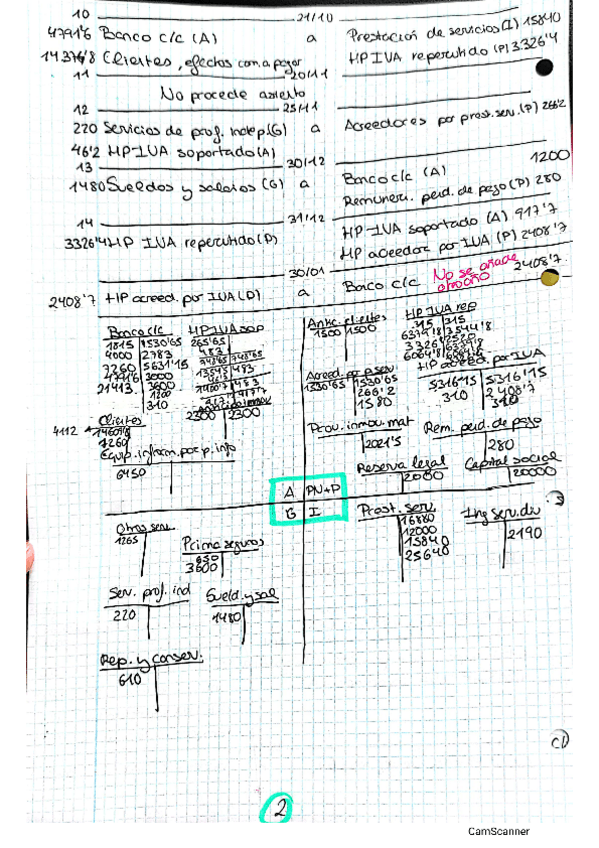 10 21/10
4791'6 Banco c/c (A) a Prestación de servicios (I) 15840
14376'8 Clientes, efectos com. a pagar HP IVA repercutido (P) 3326'4
11 20/11
No procede asiento
12 25/11
220 Servicios de prof. indep. (G) a Acreedores por prest. serv. (P) 266'2
46'2 HP IVA soportado (A)
13 30/12
1480 Sueldos y salarios (G) a Banco c/c (A) 1200
Remuner. pend. de pago (P) 280
14 31/12
3326'4 HP IVA repercutido (P) HP IVA soportado (A) 917'7
HP acreedora por IVA (P) 2408'7
30/01
2408'7 HP acreed. por IVA (D) a Banco c/c 2408'7
No se añade
otro año
Banco c/c
1815 1530'65
4000 2783
7260 5631'15
4791'6 3000
21413 3600
1200
310
HP IVA sop
265'65
483
Antic. clientes
1500 1500
HP IVA rep
315 315
HP acreed. por IVA
5316'15 5316'15
310 2408'7
310
Acreed. por p. serv.
1530'65 1530'65
266'2
1580
2300 2300
Clientes
4112
7260
Equip. inform. por p. info
6450
Prov. inmov. mat
2021'5
Rem. pend. de pago
280
Reserva legal
2000
Capital social
20000
A PN+P
G I
Otros serv.
1265
Prima seguros
650
3600
Prest. serv.
16880
12000
15840
25640
Ing serv. div
2190
Serv. prof. ind
220
Sueld. y sal
1480
Rep. y conserv.
610
2
CamScanner